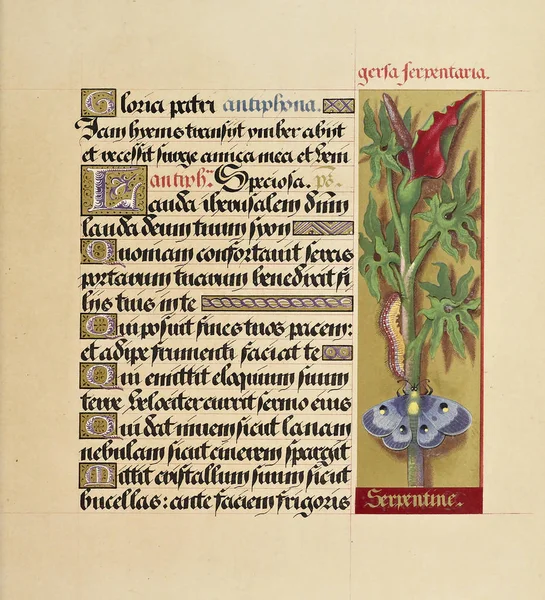 gersa serpentaria.
Gloria patri antiphona.
Iam hyems transiit ymber abiit
et recessit surge amica mea et veni
antiphᵃ Speciosa. pš.
Lauda iherusalem dn̄m
lauda deum tuum syon
Quoniam confortavit seras
portarum tuarum benedixit fi
liis tuis in te
Qui posuit fines tuos pacem:
et adipe frumenti saciat te
Qui emittit eloquium suum
terre velociter currit sermo eius
Qui dat nivem sicut lanam
nebulam sicut cinerem spargit
Mittit cristallum suum sicut
bucellas: ante faciem frigoris
Serpentine.